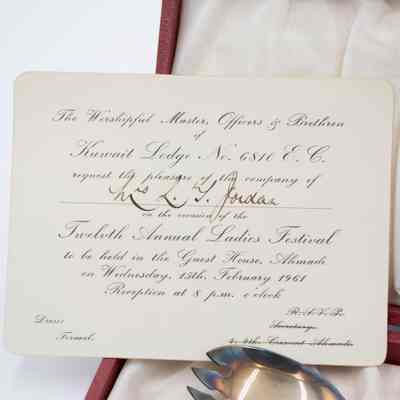 The Worshipful Master, Officers & Brethren
of
Kuwait Lodge No. 6810 E. C.
request the pleasure of the company of
Mrs L. T. Jordan
on the occasion of the
Twelvth Annual Ladies Festival
to be held in the Guest House, Ahmadi
on Wednesday, 15th, February 1961
Reception at 8 p.m. o'clock
R.S.V.P.
Dress:
Secretary,
Formal.
Crescent Ahmadi